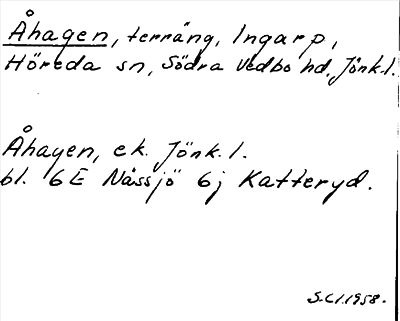 Åhagen, terräng, Ingarp,
Höreda sn, Södra Vedbo hd, Jönk.l.
Åhagen, ek. Jönk.l.
bl. 6E Nässjö 6j Katteryd.
S.Cl.1958.